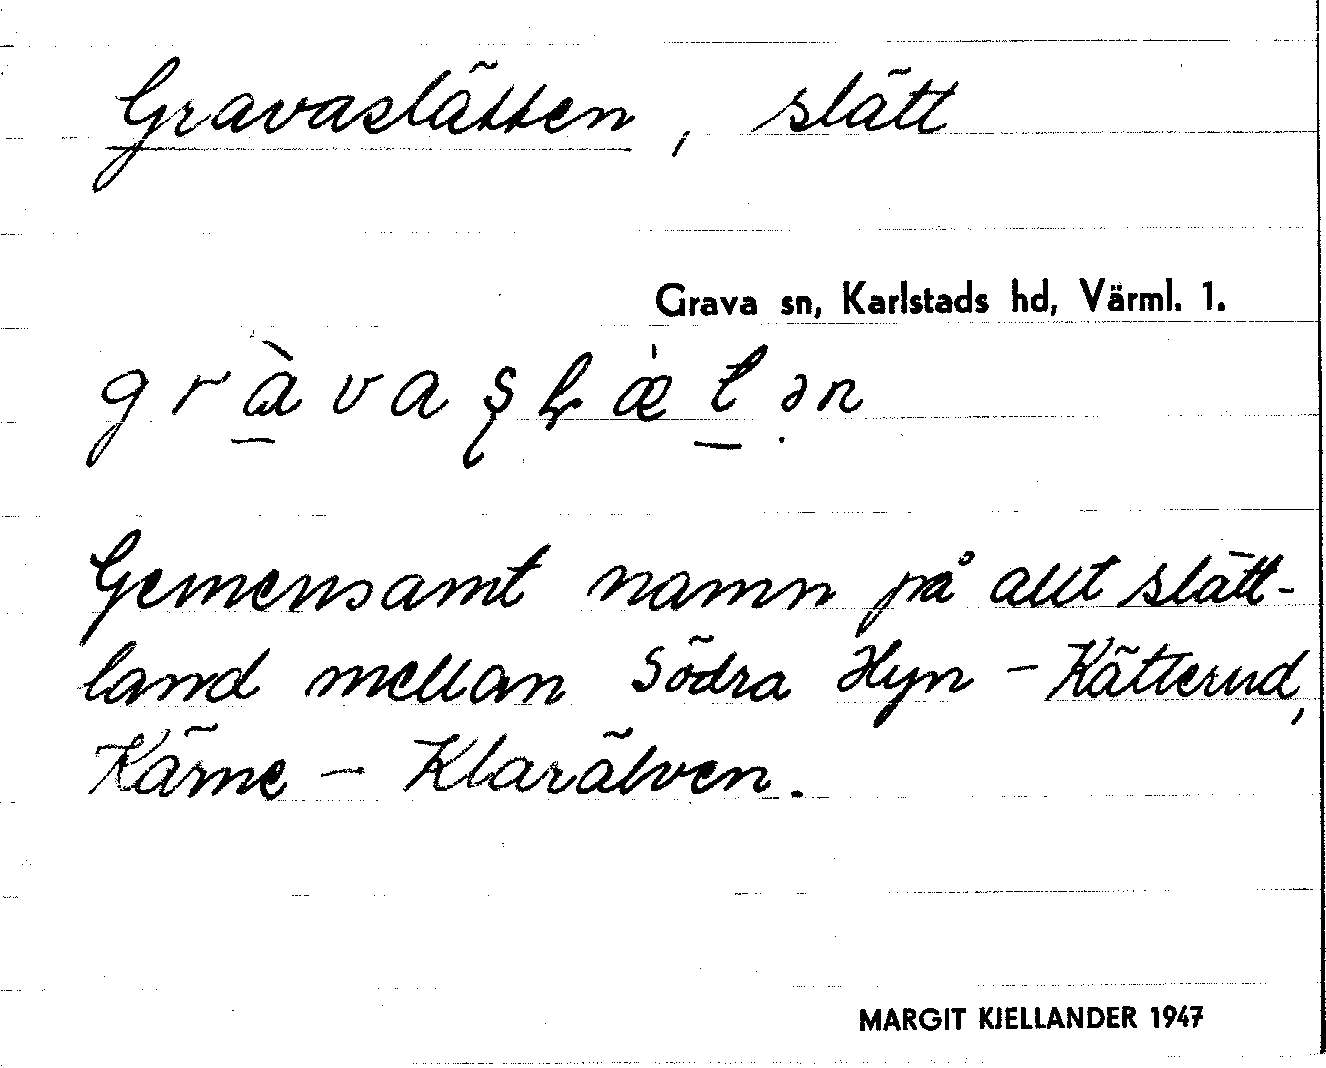 Gravaslätten, slätt
Grava sn, Karlstads hd, Värml. 1.
Gemensamt namn på allt slätt-
land mellan Södra Hyn - Kätterud,
Kärne - Klarälven.
MARGIT KJELLANDER 1947